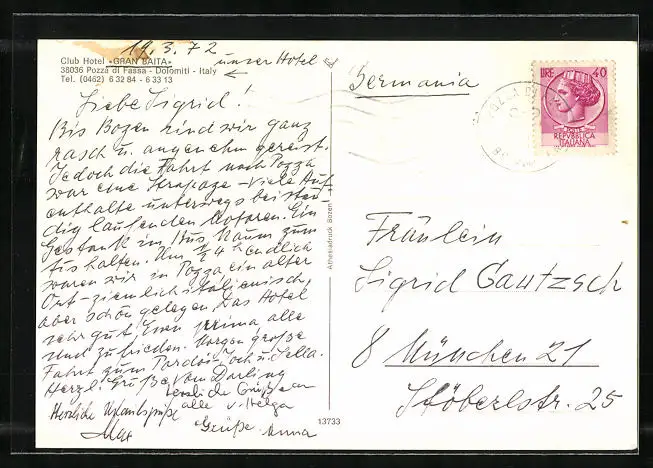 19.3.72
Club Hotel «GRAN BAITA»
38036 Pozza di Fassa - Dolomiti - Italy
Tel. (0462) 6 32 84 - 6 33 13
unser Hotel
Liebe Sigrid!
Bis Bozen sind wir ganz
rasch u. angenehm gereist.
Jedoch die Fahrt nach Pozza
war eine Strapaze - Viele Auf-
enthalte unterwegs bei stän-
dig laufenden Motoren. Ein
Gestank im Bus, kaum zum
Aushalten. Um 1/2 4 h endlich
waren wir in Pozza, ein alter
Ort - ziemlich italienisch,
aber schön gelegen. Das Hotel
sehr gut, Essen prima, alle
sind zufrieden. Morgen große
Fahrt zum Pordoi-Joch u. Sella.
Herzl. Grüße vom Darling
Herzliche Grüße an
alle v. Helga
Herzliche Urlaubsgrüße
Max
Grüße Anna
13733
Athesiadruck Bozen
Germania
LIRE 40
POSTE
REPVBBLICA
ITALIANA
Fräulein
Sigrid Gautzsch
8 München 21
Stöberlstr. 25